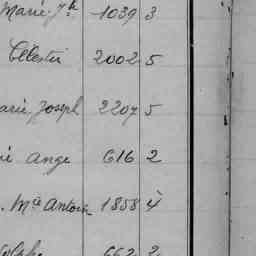 Marie, Jh 1039 3
Célestin 2002 5
Marie, Joseph 2207 5
Ange 616 2
. Mie Antoin 1858 4
662 2